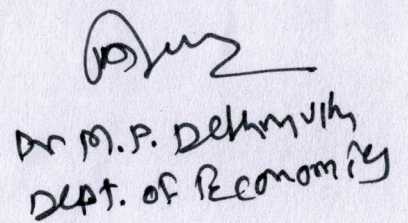 Dr M.P. Deshmukh
Dept. of Economics